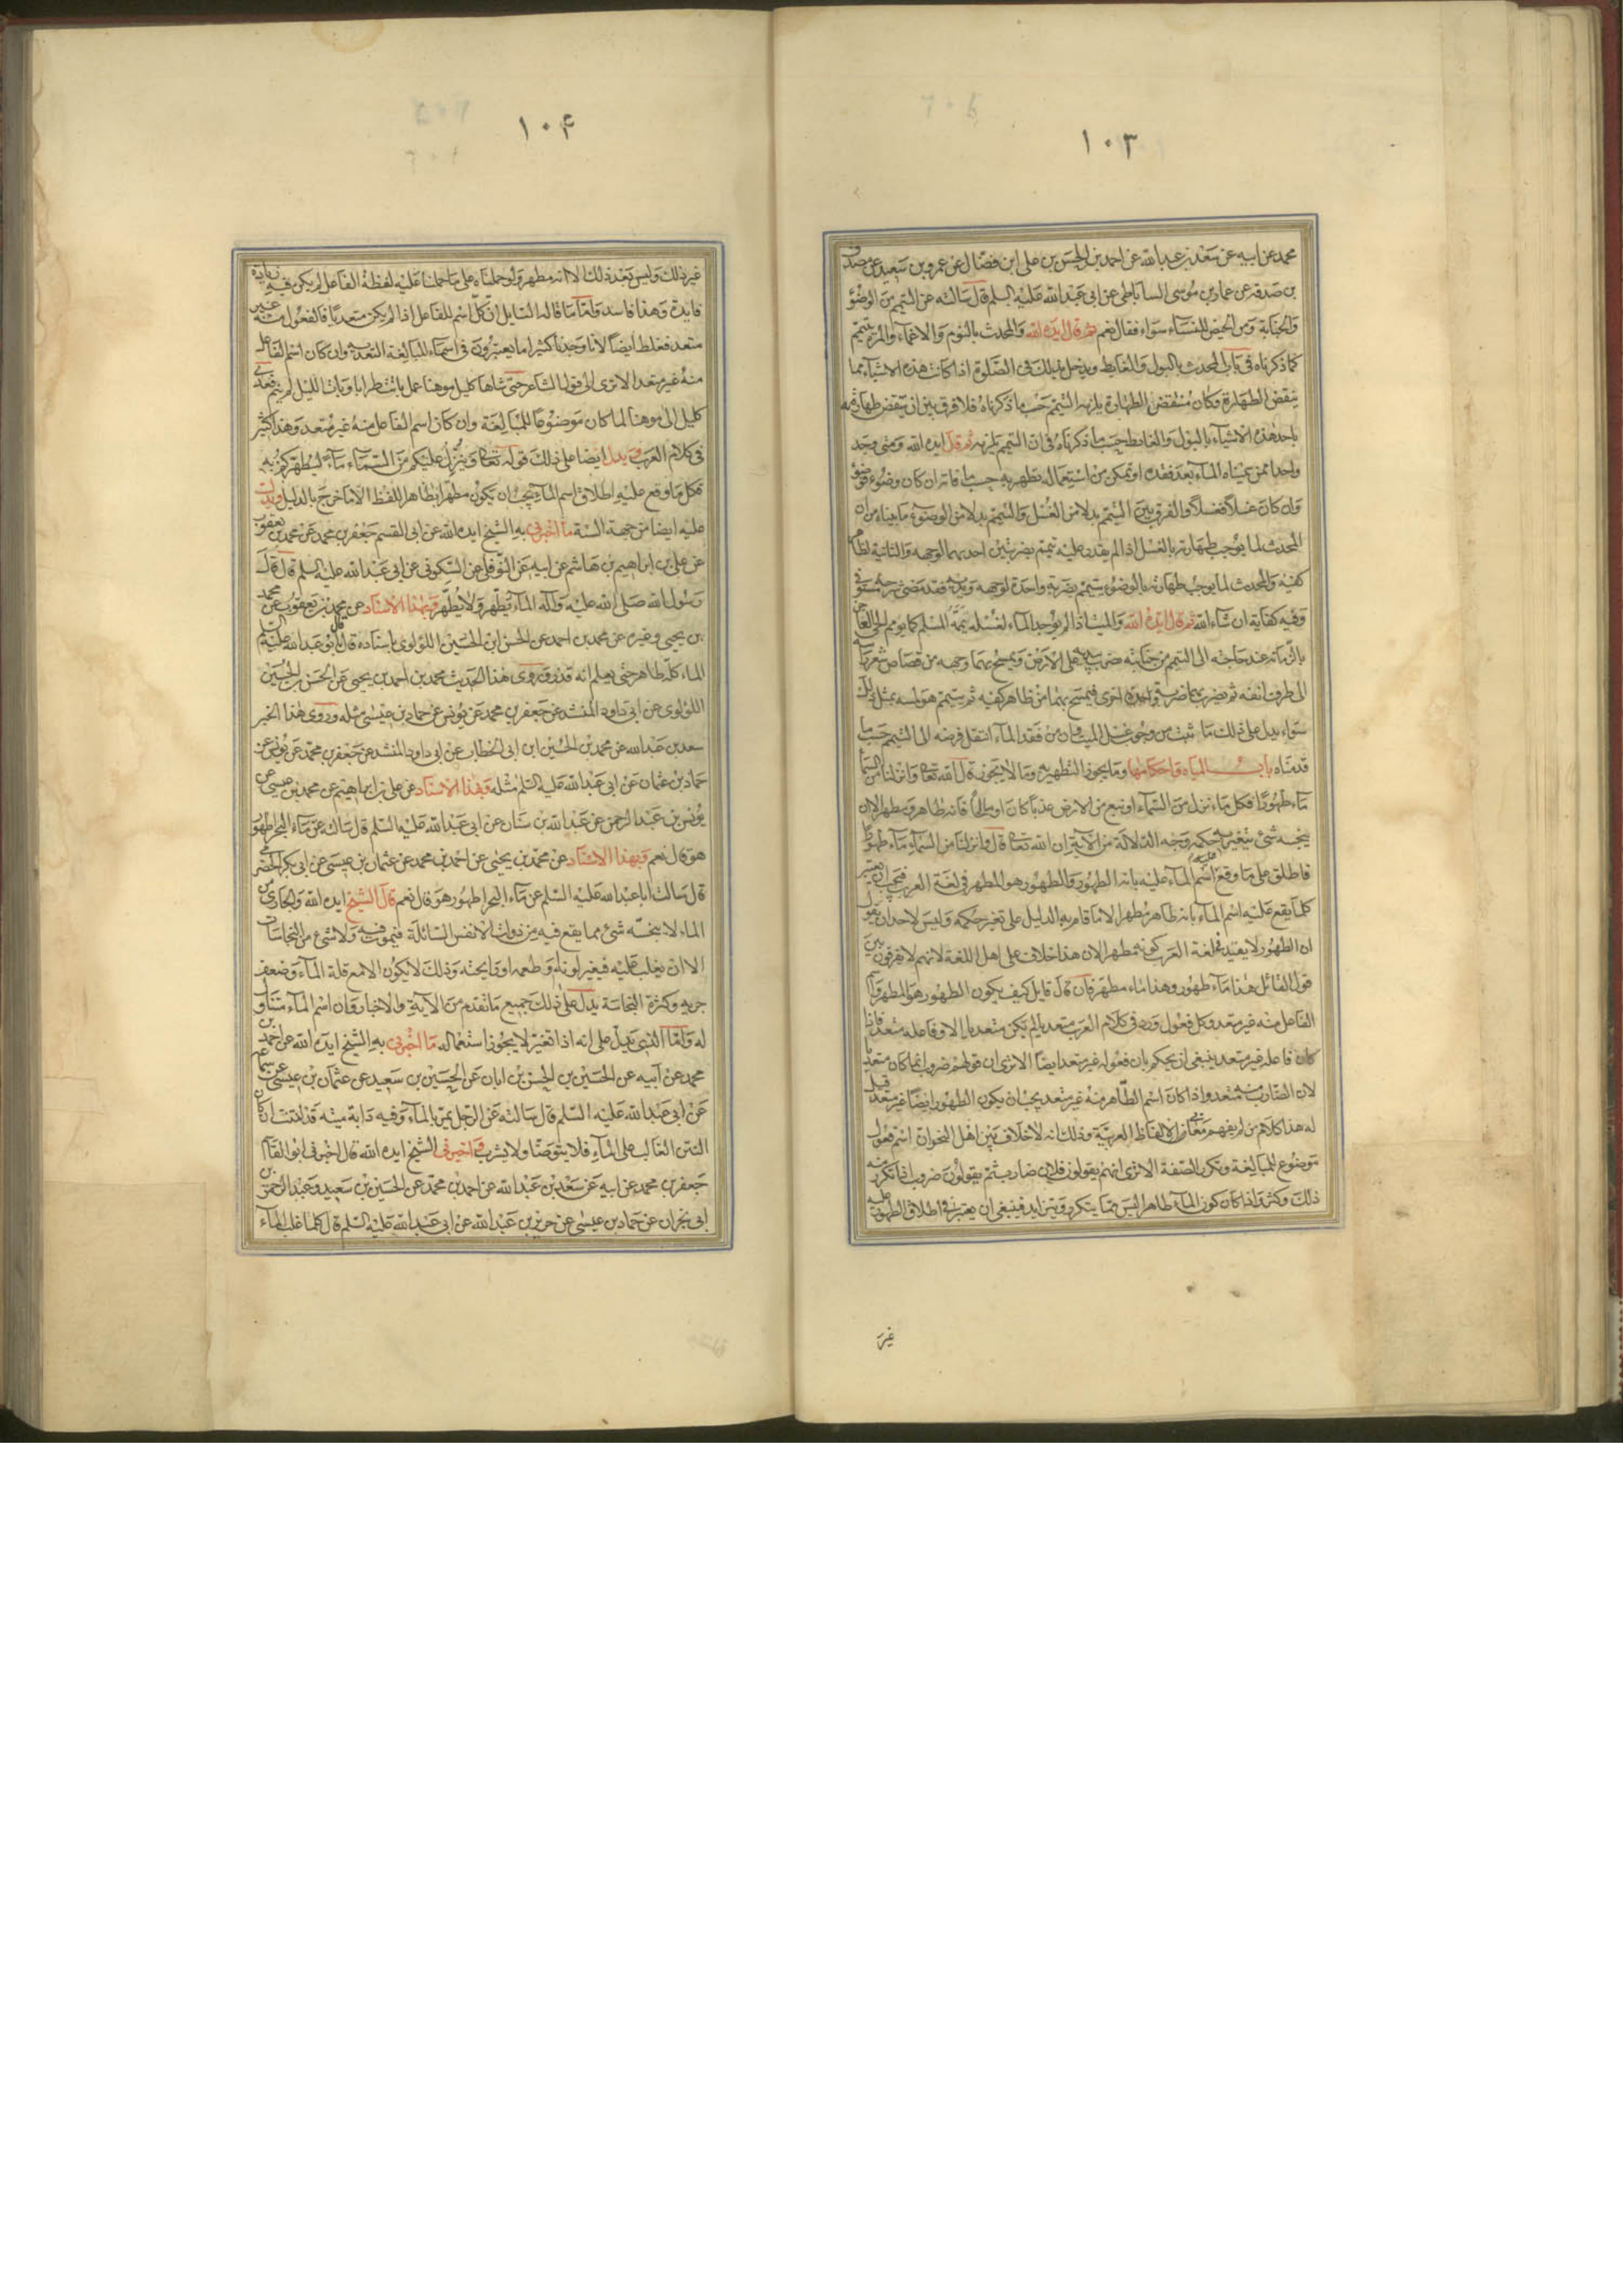 ١٠٣
محمد عن ابيه عن سعد بن عبد الله عن احمد بن الحسن بن على ابن فضال عن عمرو بن سعيد عن مصدق
بن صدقة عن عمار بن موسى الساباطى عن ابى عبد الله عليه السلم قال سالته عن التيمم من الوضوء
والجنابة ومن الحيض للنساء سواء فقال نعم ثم قال ايده الله والمحدث بالنوم والاغماء والمرة يتيمم
كما ذكرناه فى باب المحدث بالبول والغايط ويدخل بذلك فى الصلوة اذا كانت هذه الاشياء مما
ينقض الطهارة وكان منتقض الطهارة يلزمه التيمم حسب ما ذكرناه فلا فرق بين ان ينتقض طهارته
باحد هذه الاشياء بالبول والغائط حسب ما ذكرناه فى ان التيمم يلزمه ثم قال ايده الله ومتى وجد
واحد ممن سميناه الماء بعد فقده او تمكن من استعماله تطهر به حسب ما فاته ان كان وضوء فوضوء
وان كان غسلا فغسلا والفرق بين المتيمم بدلا من الغسل والمتيمم بدلا من الوضوء ما بيناه من ان
المحدث لما يوجب طهارته بالغسل اذا لم يقدر عليه تيمم بضربتين احديهما لوجهه والثانية لظاهر
كفيه والمحدث لما يوجب طهارته بالوضوء يتيمم بضربة واحدة لوجهه ويديه فقد مضى شرحه مستوفى
وفيه كفاية ان شاء الله ثم قال ايده الله والميت اذا لم يوجد الماء لغسله يممه المسلم كما يومم الحى العاجز
بالزمانة عند حاجته الى التيمم من جنابته ضرب بيديه على الارض ويمسح بهما وجهه من قصاص شعر راسه
الى طرف انفه ثم يضرب بهما ضربة واحدة اخرى فيمسح بهما من ظاهر كفيه ثم يتيمم هو لمسه بمثل ذلك
سواء يدل على ذلك ما ثبت من وجوب غسل الميت وان من فقد الماء انتقل فرضه الى التيمم حسب ما
قدمناه باب المياه واحكامها وما يجوز التطهير به وما لا يجوز قال الله تعالى وانزلنا من السماء
ماء طهورا فكل ماء نزل من السماء او نبع من الارض عذبا كان او ملحا فانه طاهر ومطهر الا ان
ينجسه شئ يتغير به حكمه وجه الدلالة من الاية ان الله تعالى قال وانزلنا من السماء ماء طهورا
فاطلق على ما وقع عليه اسم الماء عليه بانه الطهور والطهور هو المطهر فى لغة العرب فيجب ان يعتبر
كلما يقع عليه اسم الماء بانه طاهر مطهر الا ما قام به الدليل على تغير حكمه وليس لاحد ان يقول
ان الطهور لا يفيد فى لغة العرب كونه مطهرا لان هذا خلاف على اهل اللغة لانهم لا يفرقون بين
قول القائل هذا ماء طهور وهذا ماء مطهر فان قال قايل كيف يكون الطهور هو المطهر واسم
الفاعل منه غير متعد وكل فعول ورد فى كلام العرب متعديا لم يكن متعديا الا وفاعله متعد فاذا
كان فاعله غير متعد ينبغى ان يحكم بان فعوله غير متعد ايضا الا ترى ان قولهم ضروب انما كان متعديا
لان الضارب منه متعد واذا كان اسم الطاهر منه غير متعد يجب ان يكون الطهور ايضا غير متعد قيل
له هذا كلام من لم يفهم معانى الالفاظ العربية وذلك انه لا خلاف بين اهل النحو ان اسم فعول
موضوع للمبالغة وتكرر الصفة الا ترى انهم يقولون فلان ضارب ثم يقولون ضروب اذا تكرر منه
ذلك وكثر واذا كان كون الماء طاهرا ليس مما يتكرر ويتزايد فينبغى ان يعتبر فى اطلاق الطهور عليه
غير
١٠۴
غير ذلك وليس بعد ذلك الا انه مطهر ولو حملناه على ما حملنا عليه لفظة الفاعل لم يكن فيه زيادة
فايدة وهذا فاسد واما ما قاله القايل ان كل اسم للفاعل اذا لم يكن متعديا فالفعول منه غير
متعد فغلط ايضا لانا وجدنا كثيرا ما يعتبرون فى اسماء المبالغة التعدية وان كان اسم الفاعل
منه غير متعد الا ترى الى قول الشاعر حتى شاها كليل موهنا عمل باتت طرابا وبات الليل لم ينم فعدى
كليل الى موهنا لما كان موضوعا للمبالغة وان كان اسم الفاعل منه غير متعد وهذا كثير
فى كلام العرب ويدل ايضا على ذلك قوله تعالى وينزل عليكم من السماء ماء ليطهركم به
فكل ما وقع عليه اطلاق اسم الماء يجب ان يكون مطهرا بظاهر اللفظ الا ما خرج بالدليل ويدل
عليه ايضا من جهة السنة ما اخبرنى به الشيخ ايده الله عن ابى القسم جعفر بن محمد عن محمد بن يعقوب
عن على بن ابراهيم بن هاشم عن ابيه عن النوفلى عن السكونى عن ابى عبد الله عليه السلم قال قال
رسول الله صلى الله عليه وآله الماء يطهر ولا يطهر وبهذا الاسناد عن محمد بن يعقوب عن محمد
بن يحيى وغيره عن محمد بن احمد عن الحسن ابن الحسين اللؤلوى باسناده قال قال ابو عبد الله عليه السلم
الماء كله طاهر حتى يعلم انه قذر وروى هذا الحديث محمد بن احمد بن يحيى عن الحسن بن الحسين
اللؤلوى عن ابى داود المنشد عن جعفر بن محمد عن يونس عن حماد بن عيسى مثله وروى هذا الخبر
سعد بن عبد الله عن محمد بن الحسين ابن ابى الخطاب عن ابى داود المنشد عن جعفر بن محمد عن يونس عن
حماد بن عثمان عن ابى عبد الله عليه السلم مثله وبهذا الاسناد عن على بن ابراهيم عن محمد بن عيسى عن
يونس بن عبد الرحمن عن عبد الله بن سنان عن ابى عبد الله عليه السلم قال سالته عن ماء البحر اطهور
هو قال نعم وبهذا الاسناد عن محمد بن يحيى عن احمد بن محمد عن عثمان بن عيسى عن ابى بكر الحضرمى
قال سالت ابا عبد الله عليه السلم عن ماء البحر اطهور هو قال نعم قال الشيخ ايده الله والجارى من
الماء لا ينجسه شئ مما يقع فيه من ذوات الانفس السائلة فيموت فيه ولا شئ من النجاسات
الا ان يغلب عليه فيغير لونه او طعمه او رايحته وذلك لا يكون الا مع قلة الماء وضعف
جريه وكثرة النجاسة يدل على ذلك جميع ما تقدم من الآية والاخبار وان اسم الماء متناول
له واما الذى يدل على انه اذا تغير لا يجوز استعماله ما اخبرنى به الشيخ ايده الله عن احمد بن
محمد عن ابيه عن الحسين بن الحسن بن ابان عن الحسين بن سعيد عن عثمان بن عيسى عن سماعة
عن ابى عبد الله عليه السلم قال سالته عن الرجل يمر بالماء وفيه دابة ميتة قد انتنت ان كان
النتن الغالب على الماء فلا يتوضا ولا يشرب واخبرنى الشيخ ايده الله قال اخبرنى ابو القاسم
جعفر بن محمد عن ابيه عن سعد بن عبد الله عن احمد بن محمد عن الحسين بن سعيد وعبد الرحمن بن
ابى نجران عن حماد بن عيسى عن حريز بن عبد الله عن ابى عبد الله عليه السلم قال كلما غلب الماء